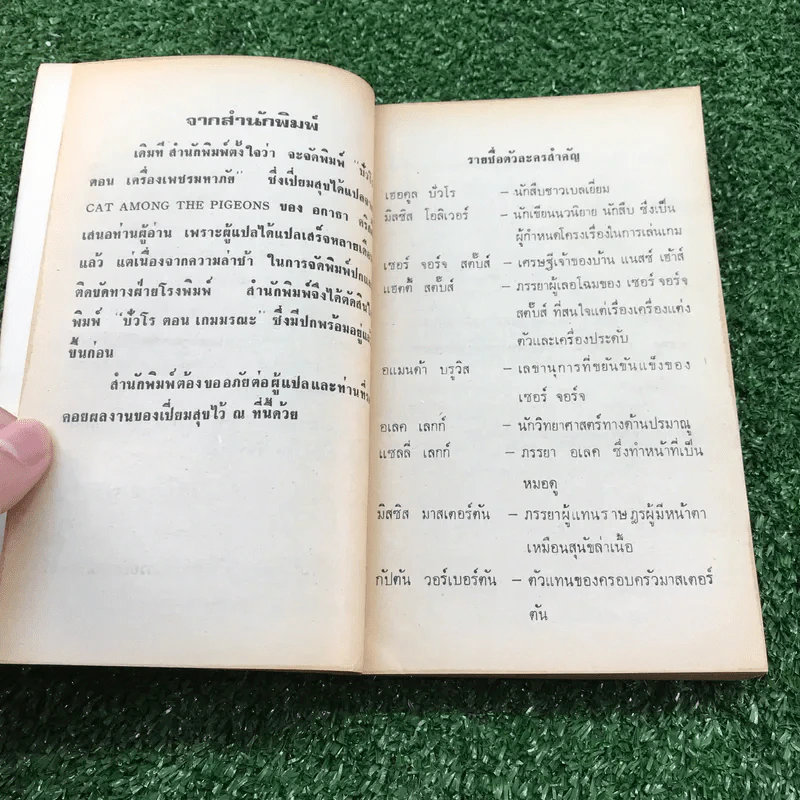 จากสำนักพิมพ์
เดิมที สำนักพิมพ์ตั้งใจว่า จะจัดพิมพ์
ตอน เครื่องเพชรมหาภัย" ซึ่งเปี่ยมสุขได้แปล
CAT AMONG THE PIGEONS ของ อกาธา
เสนอท่านผู้อ่าน เพราะผู้แปลได้แปลเสร็จหลาย
แล้ว แต่เนื่องจากความล่าช้า ในการจัดพิมพ์
ติดขัดทางฝ่ายโรงพิมพ์ สำนักพิมพ์จึงได้ตัดสิน
พิมพ์ "ปัวโร ตอน เกมมรณะ" ซึ่งมีปกพร้อมอยู่
ขึ้นก่อน
สำนักพิมพ์ต้องขออภัยต่อผู้แปลและท่าน
คอยผลงานของเปี่ยมสุขไว้ ณ ที่นี้ด้วย
รายชื่อตัวละครสำคัญ
เฮอคูล ปัวโร – นักสืบชาวเบลเยี่ยม
มิสซิส โอลิเวอร์ – นักเขียนนวนิยาย นักสืบ ซึ่งเป็น
ผู้กำหนดโครงเรื่องในการเล่นเกม
เซอร์ จอร์จ สตั๊บส์ – เศรษฐีเจ้าของบ้าน แนสซ์ เฮ้าส์
แฮตตี้ สตั๊บส์ – ภรรยาผู้เลอโฉมของ เซอร์ จอร์จ
สตั๊บส์ ที่สนใจแต่เรื่องเครื่องแต่ง
ตัวและเครื่องประดับ
อแมนด้า บรูวิส – เลขานุการที่ขยันขันแข็งของ
เซอร์ จอร์จ
อเลค เลกก์ – นักวิทยาศาสตร์ทางด้านปรมาณู
แซลลี่ เลกก์ – ภรรยา อเลค ซึ่งทำหน้าที่เป็น
หมอดู
มิสซิส มาสเตอร์ตัน – ภรรยาผู้แทนราษฎรผู้มีหน้าตา
เหมือนสุนัขล่าเนื้อ
กัปตัน วอร์เบอร์ตัน – ตัวแทนของครอบครัวมาสเตอร์
ตัน